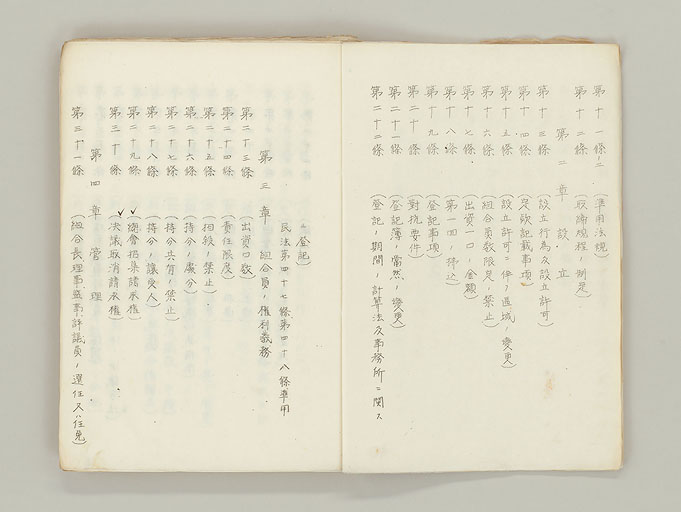 第十一條ノ二 (準用法規)
第十二條 (取締規程ノ制定)
第二章 設立
第十三條 (設立行為及設立許可)
第十四條 (定款記載事項)
第十五條 (設立許可ニ伴フ區域ノ變更)
第十六條 (組合員数限定ノ禁止)
第十七條 (出資一口ノ金額)
第十八條 (第一回ノ拂込)
第十九條 (登記事項)
第二十條 (對抗要件)
第二十一條 (登記簿ノ當然ノ變更)
第二十二條 (登記ノ期間ノ計算法及事務所ニ関スル登記)
民法第四十七條第四十八條準用
第三章 組合員ノ權利義務
第二十三條 (出資口数)
第二十四條 (責任限度)
第二十五條 (相殺ノ禁止)
第二十六條 (持分ノ處分)
第二十七條 (持分共有ノ禁止)
第二十八條 (持分ノ讓受人)
第二十九條 (總會招集請求權)
第三十條 (決議取消請求權)
第四章 管理
第三十一條 (組合長理事監事評議員ノ選任又ハ任免)